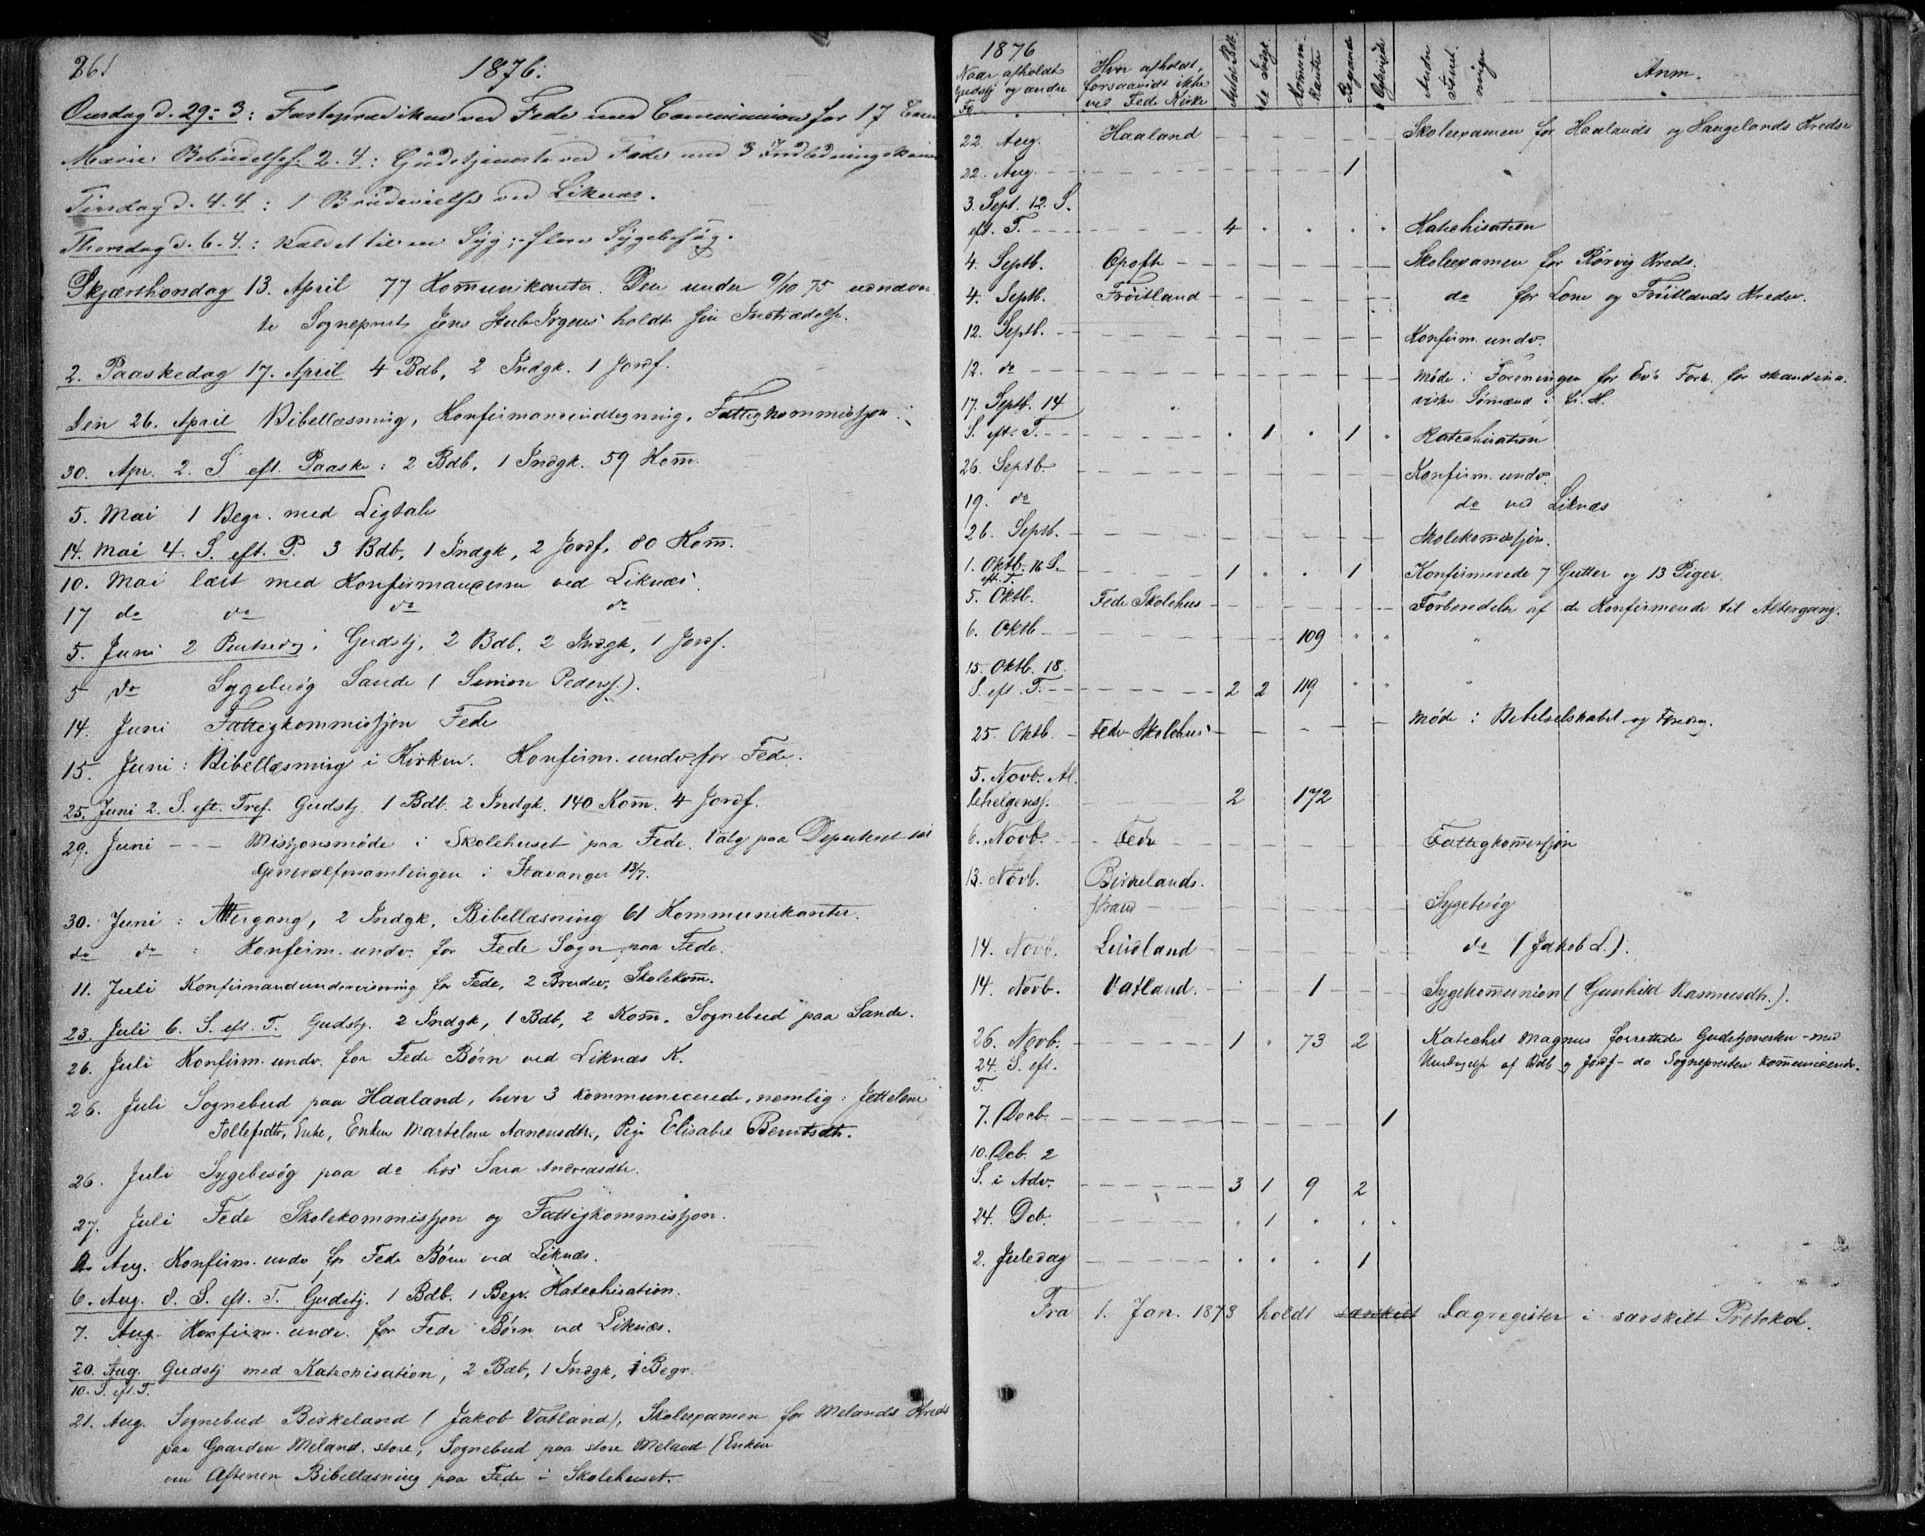 261
1876.
Onsdag d. 29-3: Fasteprædiken ved Fede med Communion for 17 Com
Mariæ Bebudelsesf. 2.4: Gudstjeneste ved Fede med 3 Indledningskoner
Tirsdag d. 4.4: 1 Brudevielse ved Liknæs.
Thorsdag d. 6.4.: kaldet til en Syg; flere Sygebesøg.
Skjærthorsdag 13. April 77 Kommunikanter. Den under 9/10 75 udnævn
te Sogneprest Jens Stub Irgens holdt sin Instrædelse.
2. Paaskedag 17. April 4 Bdb, 2 Indgk. 1 Jordf.
Den 26. April Bibellæsning, Konfirmandindtegning, Fattigkommissjon.
30. Apr. 2. S eft. Paaske: 2 Bdb, 1 Indgk. 59 Kom.
5. Mai 1 Begr. med Ligtale
14. Mai 4. S. eft. P. 3 Bdb, 1 Indgk, 2 Jordf. 80 Kom.
10. Mai læst med Konfirmanderne ved Liknæs.
17 do do do do
5. Juni 2 Pintsedag: Gudstj, 2 Bdb. 2 Indgk, 1 Jordf.
5 do Sygebesøg Sande (Simon Peders.).
14. Juni Fattigkommissjon Fede
15. Juni: Bibellæsning i Kirken. Konfirm. undv. for Fede.
25. Juni 2. S. eft. Tref. Gudstj. 1 Bdb. 2 Indgk. 140 Kom. 4 Jordf.
29. Juni - - - Missjonsmøde i Skolehuset paa Fede. Valg paa Deputeret til
Generalforsamlingen i Stavanger 13/7.
30. Juni: Altergang, 2 Indgk, Bibellæsning 61 Kommunikanter.
do do: Konfirm. undv. for Fede Sogn paa Fede.
11. Juli Konfirmandundervisning for Fede, 2 Bruder, Skolekom.
23. Juli 6. S. eft. T. Gudstj. 2 Indgk, 1 Bdb, 2 Kom. Sognebud paa Sande.
26. Juli Konfirm. undv. for Fede Børn ved Liknæs K.
26. Juli Sognebud paa Haaland, hvor 3 kommunicerede, nemlig: Jettelene
Tollefsdtr, Enke, Enken Martelene Aanensdtr., Pige Elisabet Berntsdtr.
26. Juli Sygebesøg paa do hos Sara Andreasdtr.
27. Juli Fede Skolekommissjon og Fattigkommissjon.
2. Aug. Konfirm. undv for Fede Børn ved Liknæs.
6. Aug. 8. S. eft. T. Gudstj. 1 Bdb. 1 Begr. Katechisation.
7. Aug. Konfirm. undv. for Fede Børn ved Liknæs.
20. Aug. Gudstj med Katechisation, 2 Bdb, 1 Indgk, 1 Begr.
10. S. eft. T.
21. Aug. Sognebud Birkeland (Jakob Vatland), Skoleexamen for Melands Kreds
paa Gaarden Meland, store, Sognebud paa store Meland (Enken
om Aftenen Bibellæsning paa Fede i Skolehuset.
1876
Naar afholdt Gudstj og andre Fo.
Hvor afholdt, forsaavidt ikke ved Fede Kirke
Antal Bdb.
do Indgk.
Kommunikanter
Begravede
Gekvinde
Andre Forretninger
Anm.
22 Aug. Haaland Skoleexamen for Haalands og Haugelands Kredse
22. Aug. 1 "
3. Sept. 12. S.
eft. T. 4 Katechisation
4. Septb. Opofte Skoleexamen for Rørvig Kreds.
4. Septb. Frøitland do for Lone og Frøitlands Kredse.
12. Septb. Konfirm. undv.
12. do Møde i Foreningen for Ev's Fork. for skandina
17. Septb. 14 viske Sømænd i fr. H.
S. eft. T. 1 1 Katechisation
26. Septb. Konfirm. undv.
19. do do ved Liknæs
26. Septb. Skolekommissjon.
1. Oktb. 16 S. eft. T. 1 1 Konfirmerede 7 Gutter og 13 Piger.
5. Oktb. Fede Skolehus Forberedelse af de Konfirmerede til Altergang.
6. Oktb 109 "
15. Oktb. 18.
S. eft. T. 2 2 119 "
25. Oktb. Fede Skolehus Møde i Bibelselskabet og Foredrag.
5. Novb. Al.
lehelgensf. 2 172
6. Novb. Fede Fattigkommissjon
13. Novb. Birkelands.
strand Sygebesøg
14. Novb. Lindland do (Jakob L.).
14. Novb. Vatland. 1 Sygekommunion (Gunhild Rasmusdtr.).
26. Novb. 1 73 2 Katechet Magnus forrettede Gudstjenesten - med
24. S. eft. Undtagelse af Bdb og Jordf - da Sognepresten kommunicerede.
T.
7. Decb. 1
10. Dcb. 2
S. i Adv. 3 1 9 2
24. Dcb. 1
2. Juledag 1
Fra 1. Jan. 1873 holdt særskilt Dagregister i særskilt Protokol.